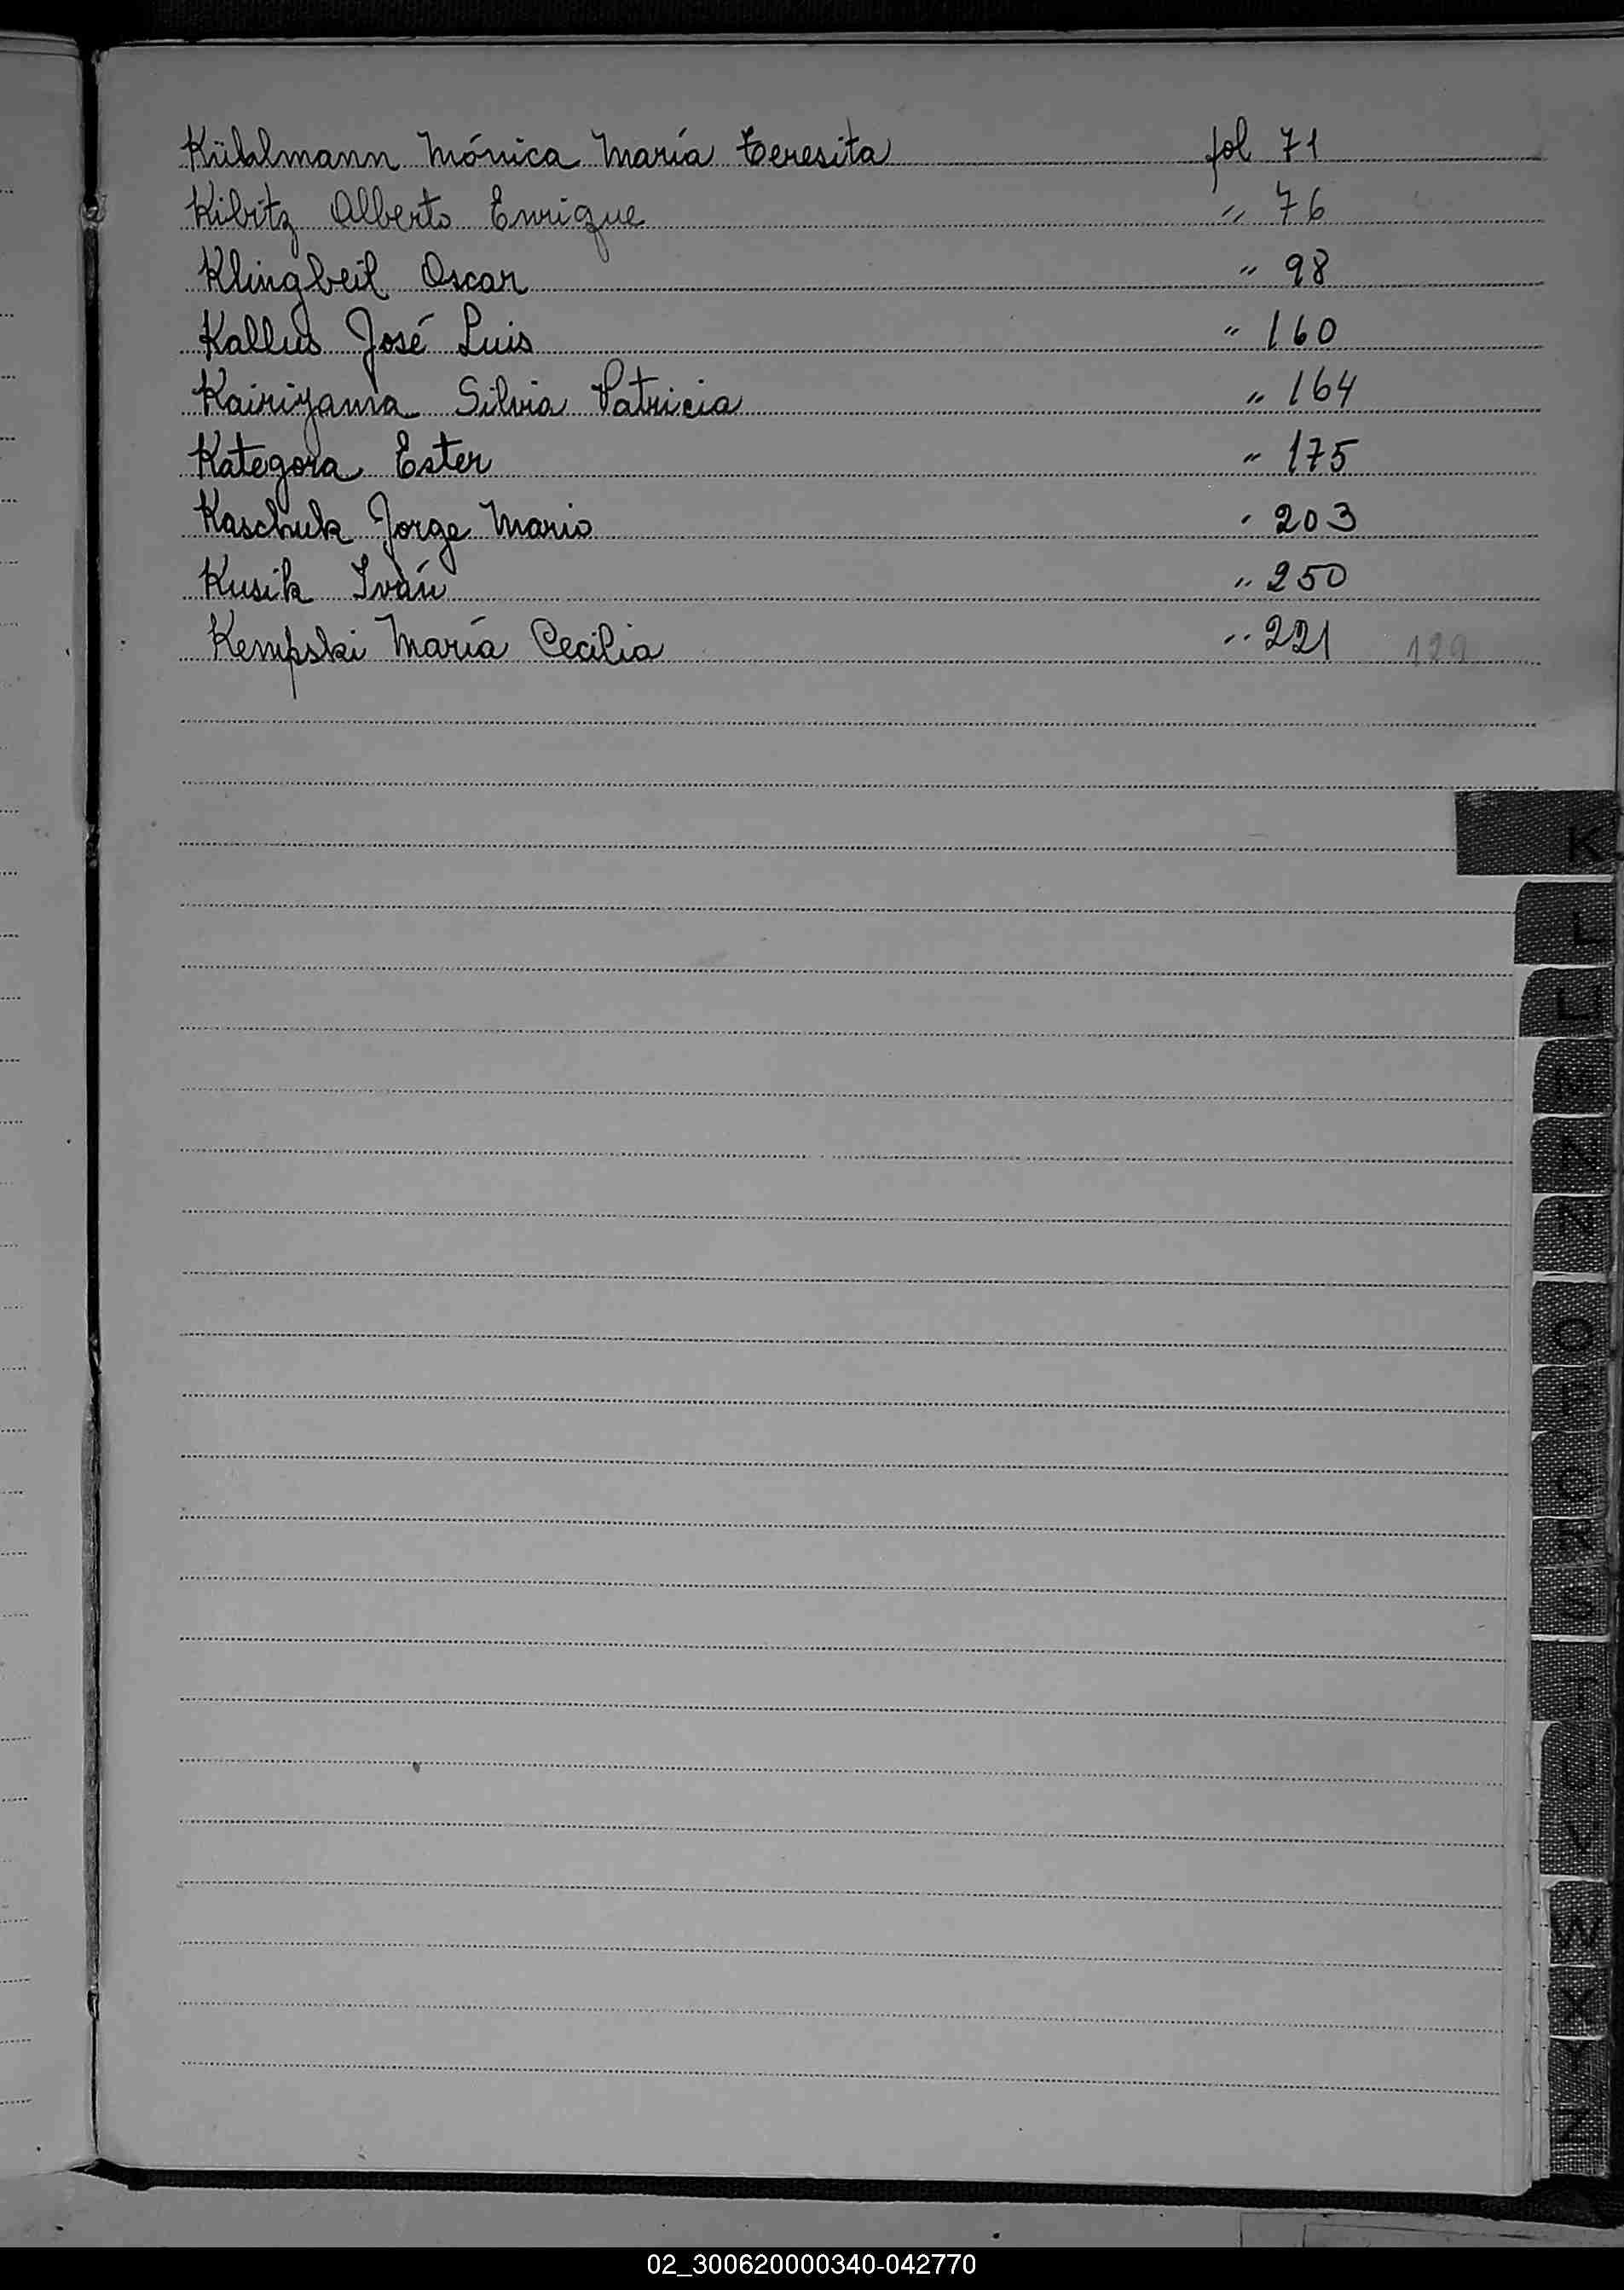 Kühlmann Mónica María Teresita fol 71
Kibitz Alberto Enrique " 76
Klingbeil Oscar " 98
Kallus José Luis " 160
Kairiyama Silvia Patricia " 164
Kategora Ester " 175
Kaschuk Jorge Mario " 203
Kusik Iván " 250
Kempski María Cecilia " 221
K
L
LL
M
N
Ñ
O
P
Q
R
S
T
U
V
W
X
Y
Z
02_300620000340-042770